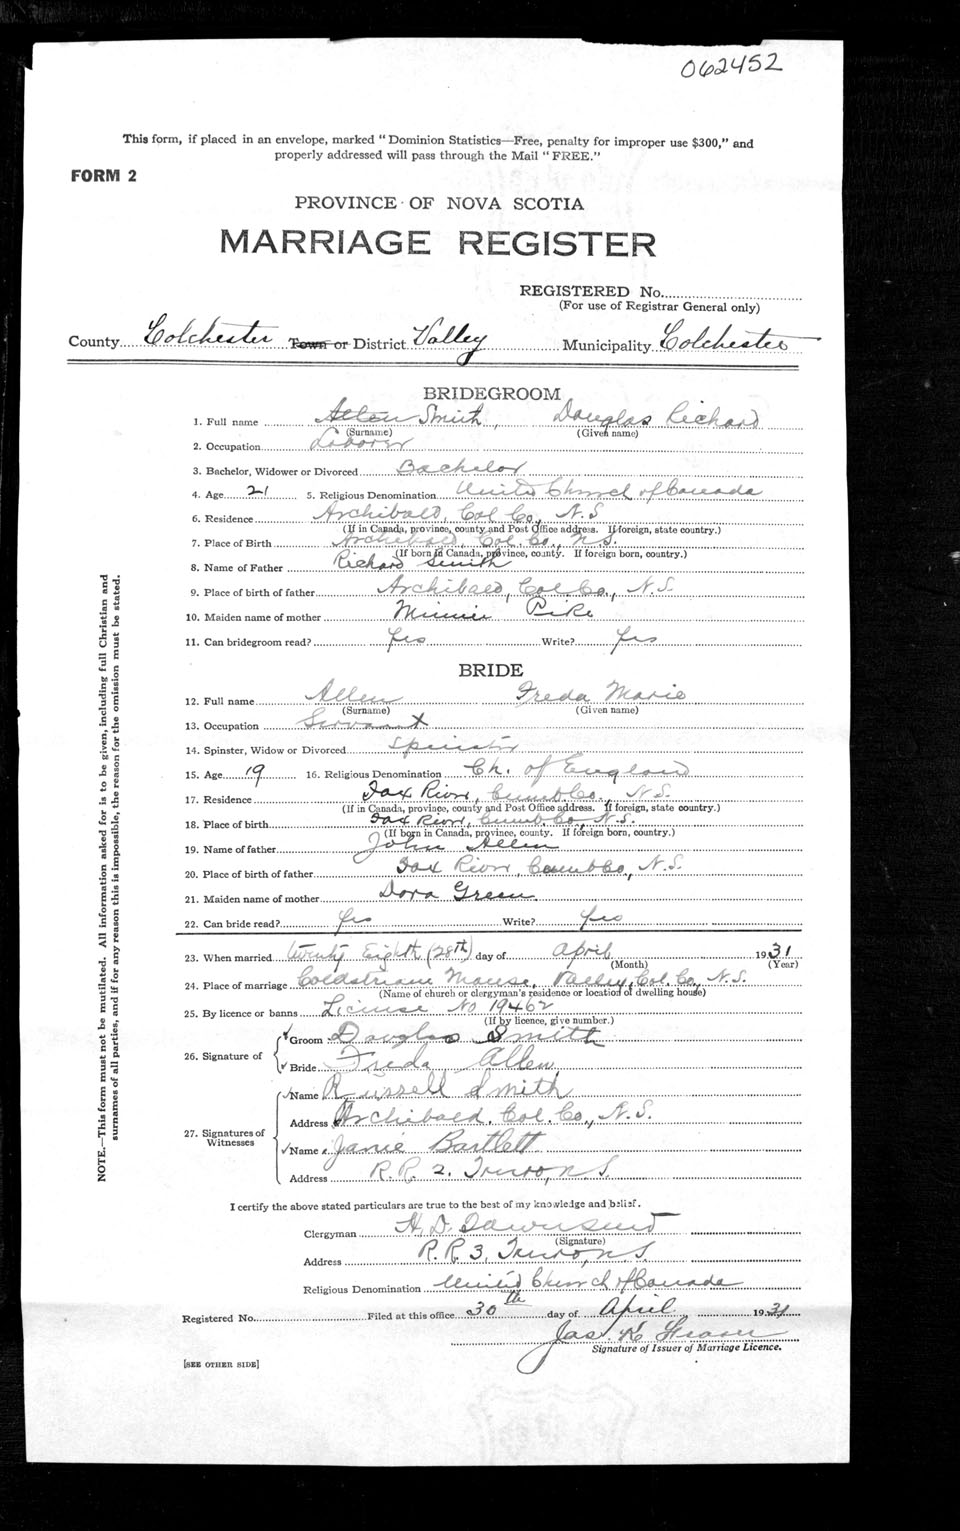 062452
This form, if placed in an envelope, marked "Dominion Statistics—Free, penalty for improper use $300," and
properly addressed will pass through the Mail "FREE."
FORM 2
PROVINCE OF NOVA SCOTIA
MARRIAGE REGISTER
REGISTERED No.
(For use of Registrar General only)
County Colchester Town or District Valley Municipality Colchester
BRIDEGROOM
1. Full name Smith, Douglas Richard
(Surname) (Given name)
2. Occupation Laborer
3. Bachelor, Widower or Divorced Bachelor
4. Age 21 5. Religious Denomination United Church of Canada
6. Residence Archibald, Col. Co., N.S.
(If in Canada, province, county and Post Office address. If foreign, state country.)
7. Place of Birth Archibald, Col. Co., N.S.
(If born in Canada, province, county. If foreign born, country.)
8. Name of Father Richard Smith
9. Place of birth of father Archibald, Col. Co., N.S.
10. Maiden name of mother Minnie Pike
11. Can bridegroom read? Yes Write? Yes
BRIDE
12. Full name Allen Freda Marie
(Surname) (Given name)
13. Occupation Servant
14. Spinster, Widow or Divorced Spinster
15. Age 19 16. Religious Denomination Ch. of England
17. Residence Fox River, Cumb. Co., N.S.
(If in Canada, province, county and Post Office address. If foreign, state country.)
18. Place of birth Fox River, Cumb. Co., N.S.
(If born in Canada, province, county. If foreign born, country.)
19. Name of father John Allen
20. Place of birth of father Fox River Cumb Co, N.S.
21. Maiden name of mother Dora Green
22. Can bride read? Yes Write? Yes
23. When married twenty Eighth (28th) day of April 1931
(Month) (Year)
24. Place of marriage Manse, Valley, Col. Co., N.S.
(Name of church or clergyman's residence or location of dwelling house)
25. By licence or banns License No 19462
(If by licence, give number.)
26. Signature of
Groom Douglas Smith
Bride Freda Allen
27. Signatures of Witnesses
Name Russell Smith
Address Archibald, Col. Co., N.S.
Name Janie Bartlett
Address R.R. 2. Truro, N.S.
I certify the above stated particulars are true to the best of my knowledge and belief.
Clergyman H. D. Townsend
(Signature)
Address R.R. 3, Truro, N.S.
Religious Denomination United Church of Canada
Registered No. Filed at this office 30th day of April 1931
Jas. K. Fraser
Signature of Issuer of Marriage Licence.
[SEE OTHER SIDE]
NOTE.—This form must not be mutilated. All information asked for is to be given, including full Christian and
surnames of all parties, and if for any reason this is impossible, the reason for the omission must be stated.